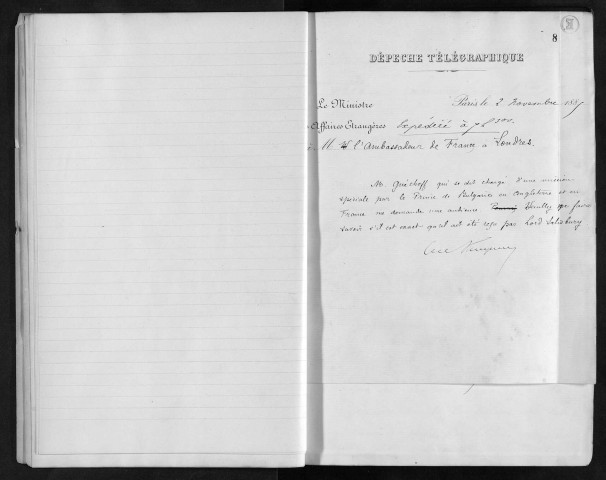 8
DÉPECHE TÉLÉGRAPHIQUE
Le Ministre Paris le 2 novembre 1885
Affaires Etrangères Expédiée à 7h
M. l'Ambassadeur de France à Londres.
M. Guéchoff qui se dit chargé d'une mission
spéciale par le Prince de Bulgarie en Angleterre et en
France me demande une audience. Veuillez me faire
savoir s'il est exact qu'il ait été reçu par Lord Salisbury